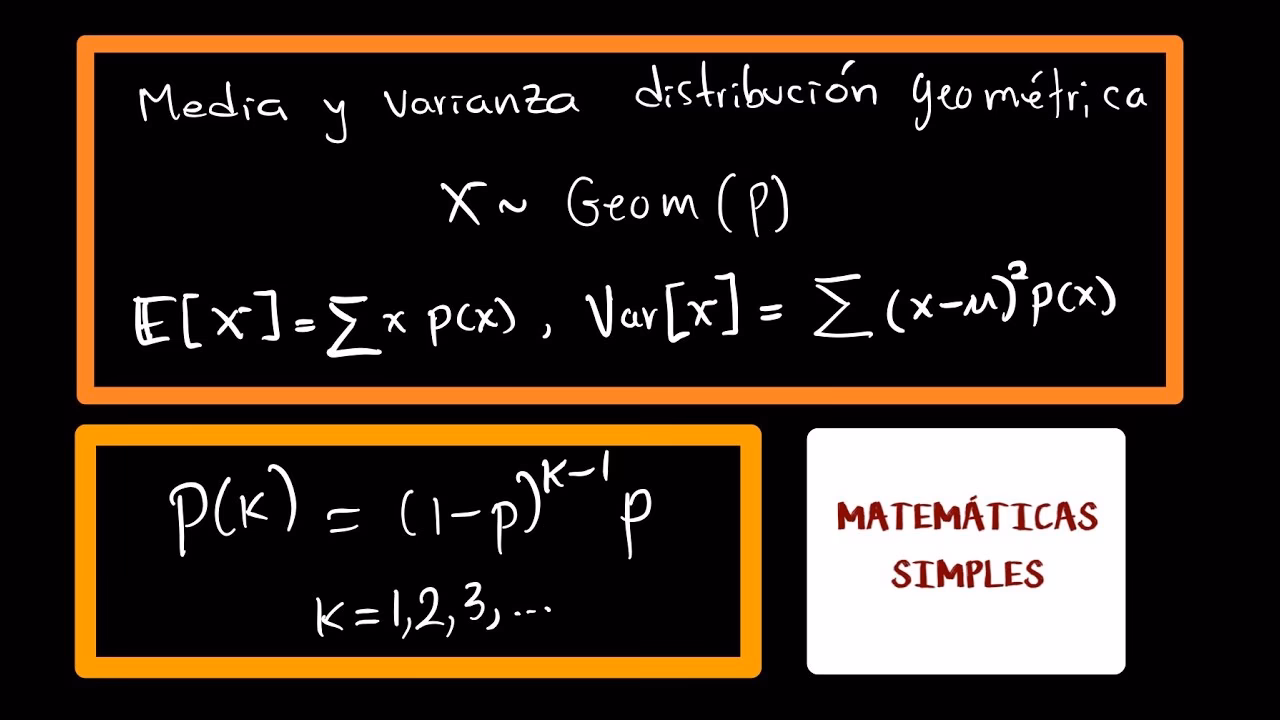 Media y varianza distribución geométrica
X ~ Geom (p)
E[X] = ∑ x p(x) , Var[x] = ∑ (x-μ)² p(x)
P(k) = (1-p)^{k-1} p
k = 1,2,3,...
MATEMÁTICAS
SIMPLES